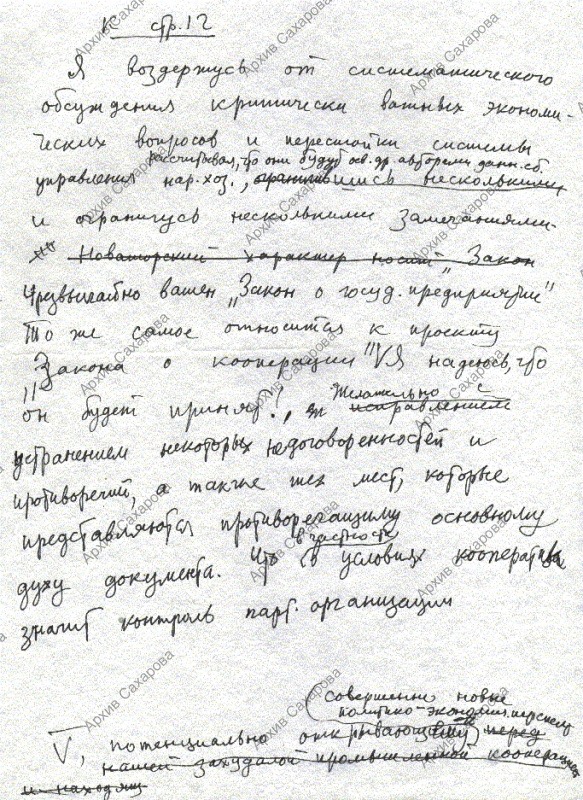 К стр. 12
Я воздержусь от систематического
обсуждения критически важных экономи-
ческих вопросов и перестройки системы
рассчитывая, что они будут осв. др. авторами данн. сб.
управления нар. хоз., ограничившись несколькими
и ограничусь несколькими замечаниями.
Новаторский характер носит "Закон
Чрезвычайно важен „Закон о госуд. предприятии"
То же самое относится к проекту
„Закона о кооперации" V Я надеюсь, что
он будет принят!, желательно с
исправлением
устранением некоторых недоговоренностей и
противоречий, а также тех мест, которые
представляются противоречащими основному
в частности
духу документа. Что в условиях кооператива
значит контроль парт. организации
совершенно новые
политико-экономич. перспективы
V, потенциально открывающий перед
нашей захудалой промышленной кооперацией
и находящ